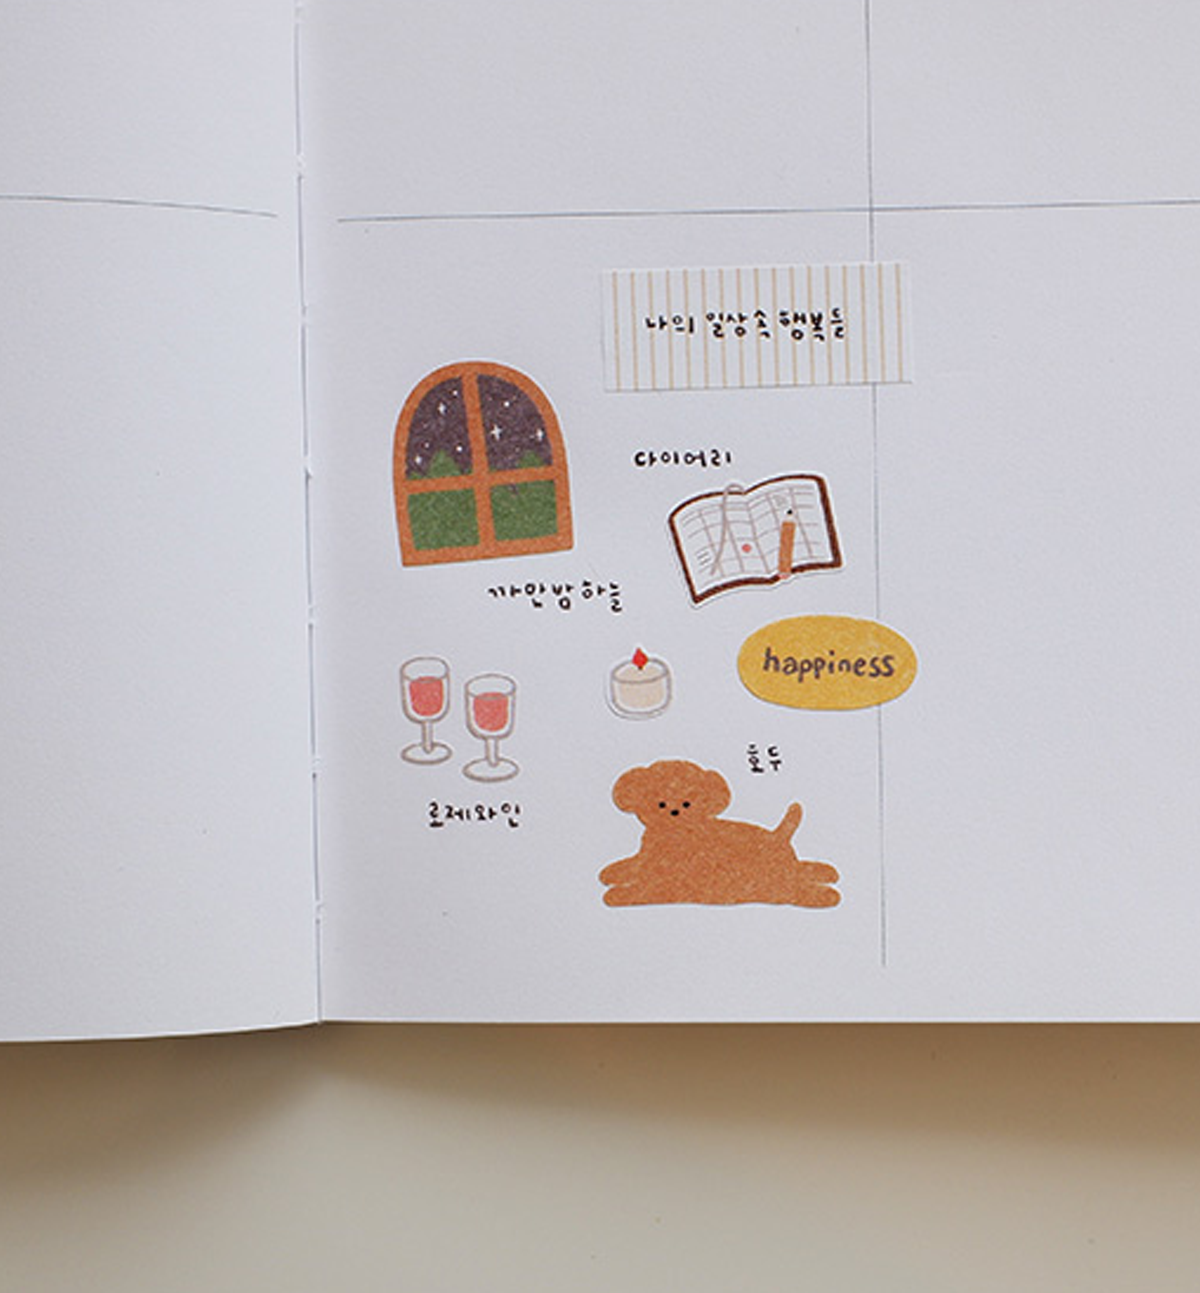 나의 일상 속 행복들
다이어리
까만 밤 하늘
happiness
호두
로제와인